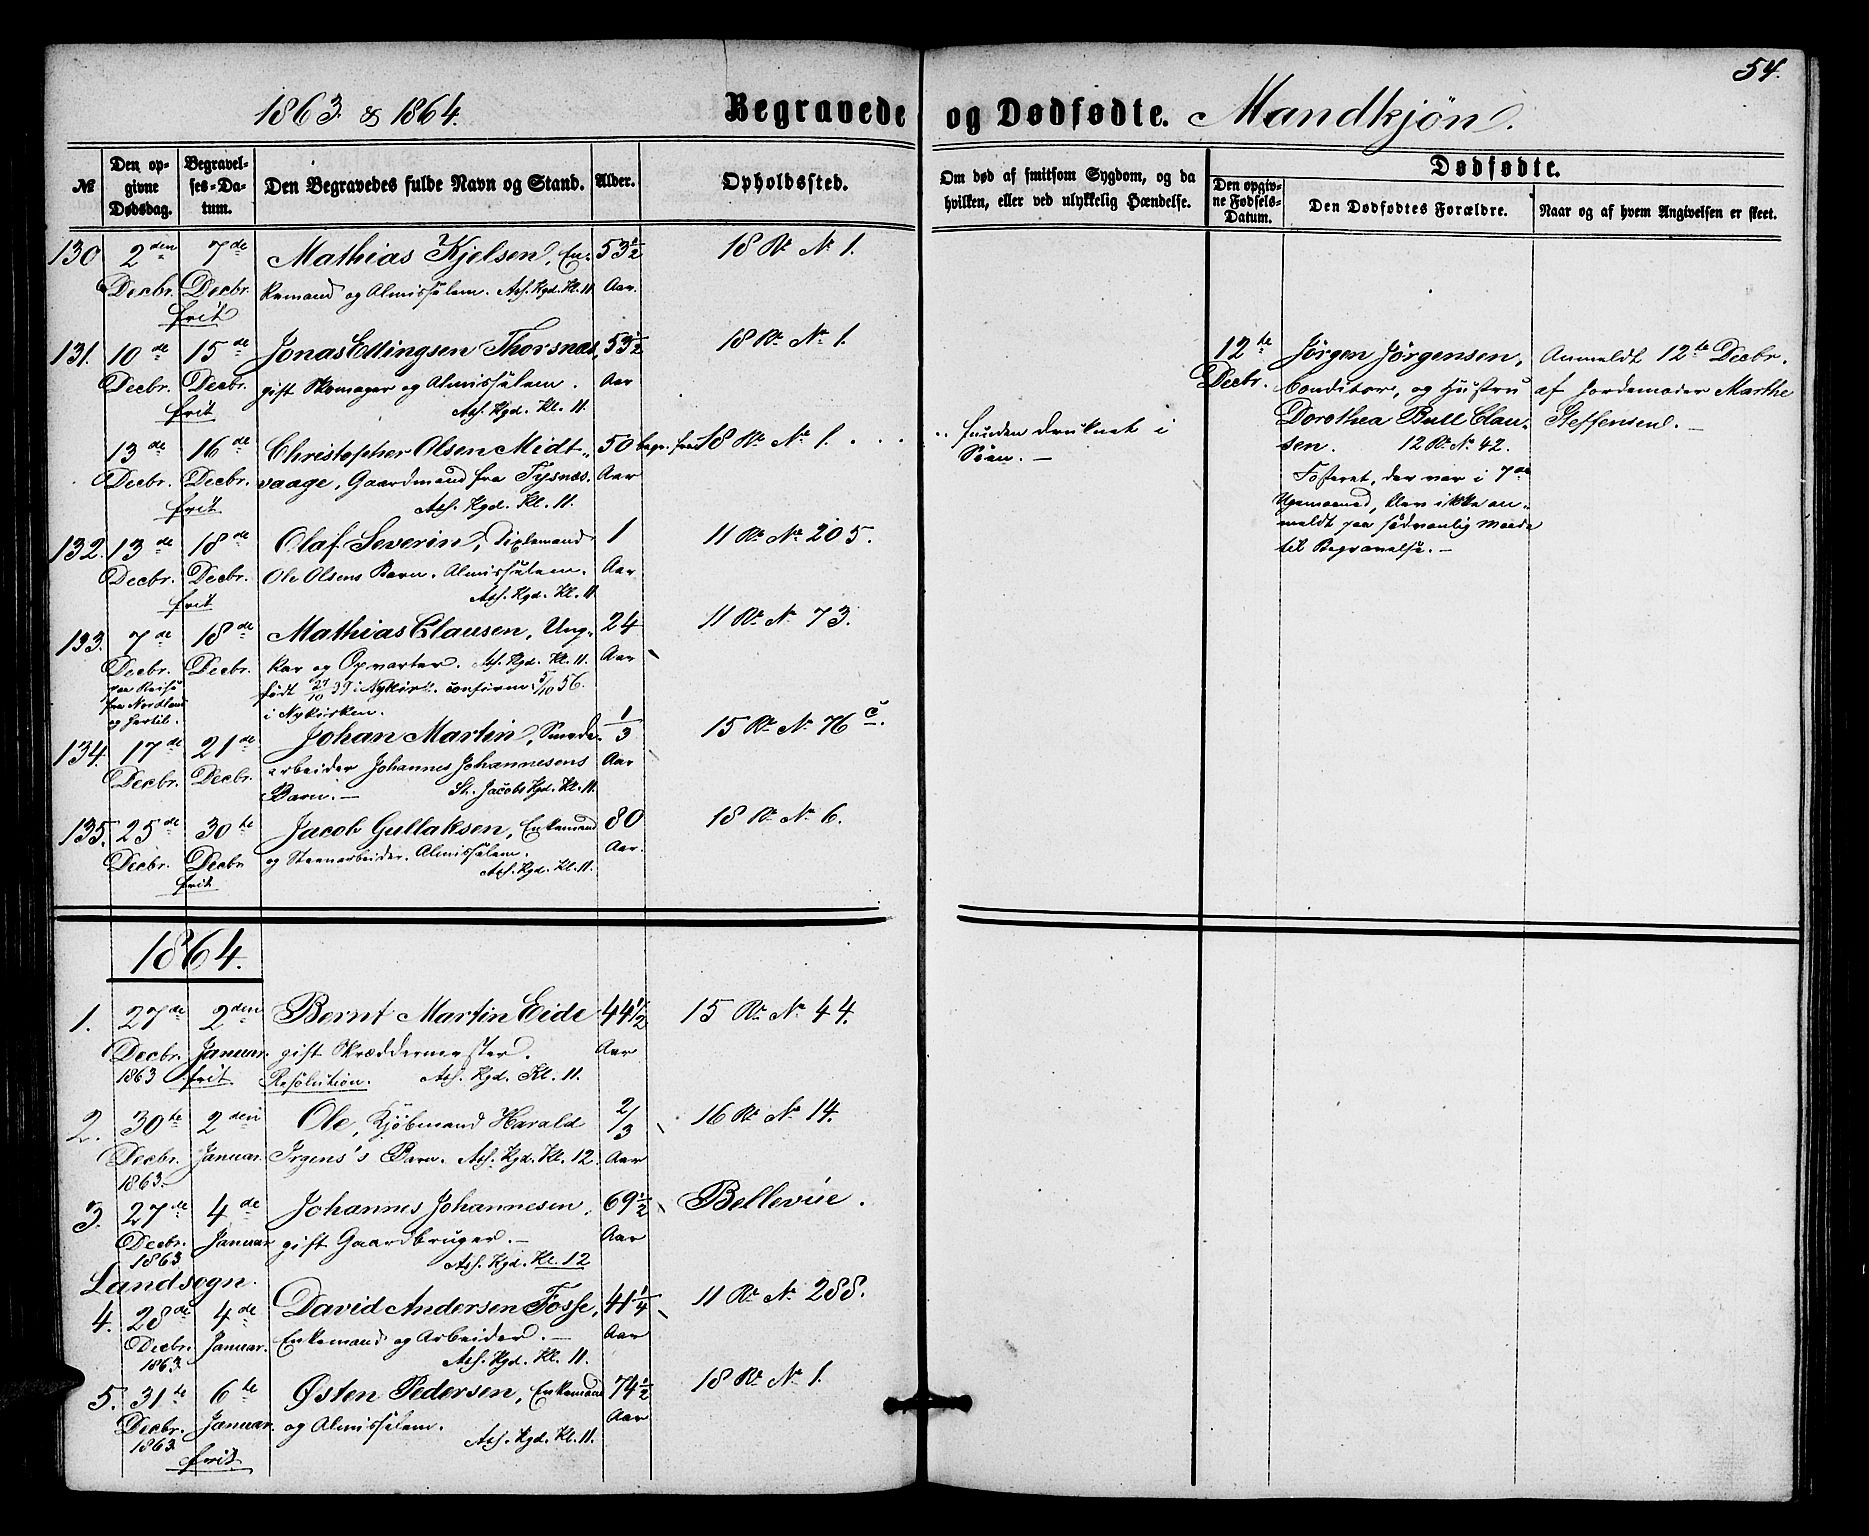 54.
1863 & 1864.
Begravede og Dødfødte. Mandkjøn.
№
Den opgivne Dødsdag.
Begravelses-Datum.
Den Begravedes fulde Navn og Stand.
Alder.
Opholdssted.
Om død af smitsom Sygdom, og da
hvilken, eller ved ulykkelig Hændelse.
Dødfødte.
Den opgivne Fødsels-Datum.
Den Dødfødtes Forældre.
Naar og af hvem Angivelsen er skeet.
130 2den 7de Mathias Kjelsen, En- 53½ 18 R. N. 1.
Decbr. Decbr. kemand og Almisselem. Ass. Kgd. Kl. 11. Aar.
frit
131. 10de 15de Jonas Ellingsen Thorsnæs, 53½ 18 R. N. 1.
Decbr. Decbr. gift Skomager og Almisselem. Aar
frit Ass. Kgd. Kl. 11.
13de 16de Christopher Olsen Midt- 50 begr. fra 18 R. N. 1. . . .
Decbr. Decbr. vaage, Gaardmand fra Tysnæs. Aar
frit Ass. Kgd. Kl. 11.
funden druknet i
Søen. —
132. 13de 18de Olaf Severin, Dixelmand 1 11 R. N. 205.
Decbr. Decbr. Ole Olsens Barn. Almisselem. Aar
frit Ass. Kgd. Kl. 11
133. 7de 18de Mathias Clausen, Ung- 24 11 R. N. 73.
Decbr. Decbr. kar og Opvarter. Ass. Kgd. Kl. 11. Aar
paa Reise født 27/10 39 i Nykirk. confirm. 5/10 56.
fra Nordland i Nykirken.
og hertil.
134. 17de 21de Johan Martin, Smede- 1/3 15 R. N. 76 c.
Decbr. Decbr. arbeider Johannes Johannesens Aar
Barn. — St. Jacobs Kgd. Kl. 11.
135. 25de 30te Jacob Gullaksen, Enkemand 80 18 R. N. 6.
Decbr. Decbr. og Steenarbeider. Almisselem. Aar.
frit Ass. Kgd. Kl. 11.
12te Jørgen Jørgensen, Anmeldt 12te Decbr.
Decbr. Conditor, og Hustru af Jordemoder Marthe
Dorothea Bull Clau- Steffensen. —
sen. 12 R. N. 42.
Fosteret, der var i 7de
Ugemaaned, blev ikke an-
meldt paa sædvanlig Maade
til Begravelse. —
1864.
1. 27de 2den Bernt Martin Eide 44½ 15 R. N. 44.
Decbr. Januar. gift Skræddermester. Aar
1863 frit Resolution. Ass. Kgd. Kl. 11.
2. 30te 2den Ole, Kjøbmand Harald 2/3 16 R. N. 14.
Decbr. Januar. Irgens's Barn. Ass. Kgd. Kl. 12. Aar
1863.
3. 27de 4de Johannes Johannesen, 69½ Bellevüe.
Decbr. Januar gift Gaardbruger. — Aar
1863 Ass. Kgd. Kl. 12
Landsogn.
4. 28de 4de David Andersen Fosse, 41¼ 11 R. N. 288.
Decbr. Januar. Enkemand og Arbeider. — Aar
1863. Ass. Kgd. Kl. 11.
5. 31te 6te Østen Pedersen, Enkemand 74½ 18 R. N. 1.
Decbr. Januar. og Almisselem. Aar
1863. Ass. Kgd. Kl. 11.
frit.